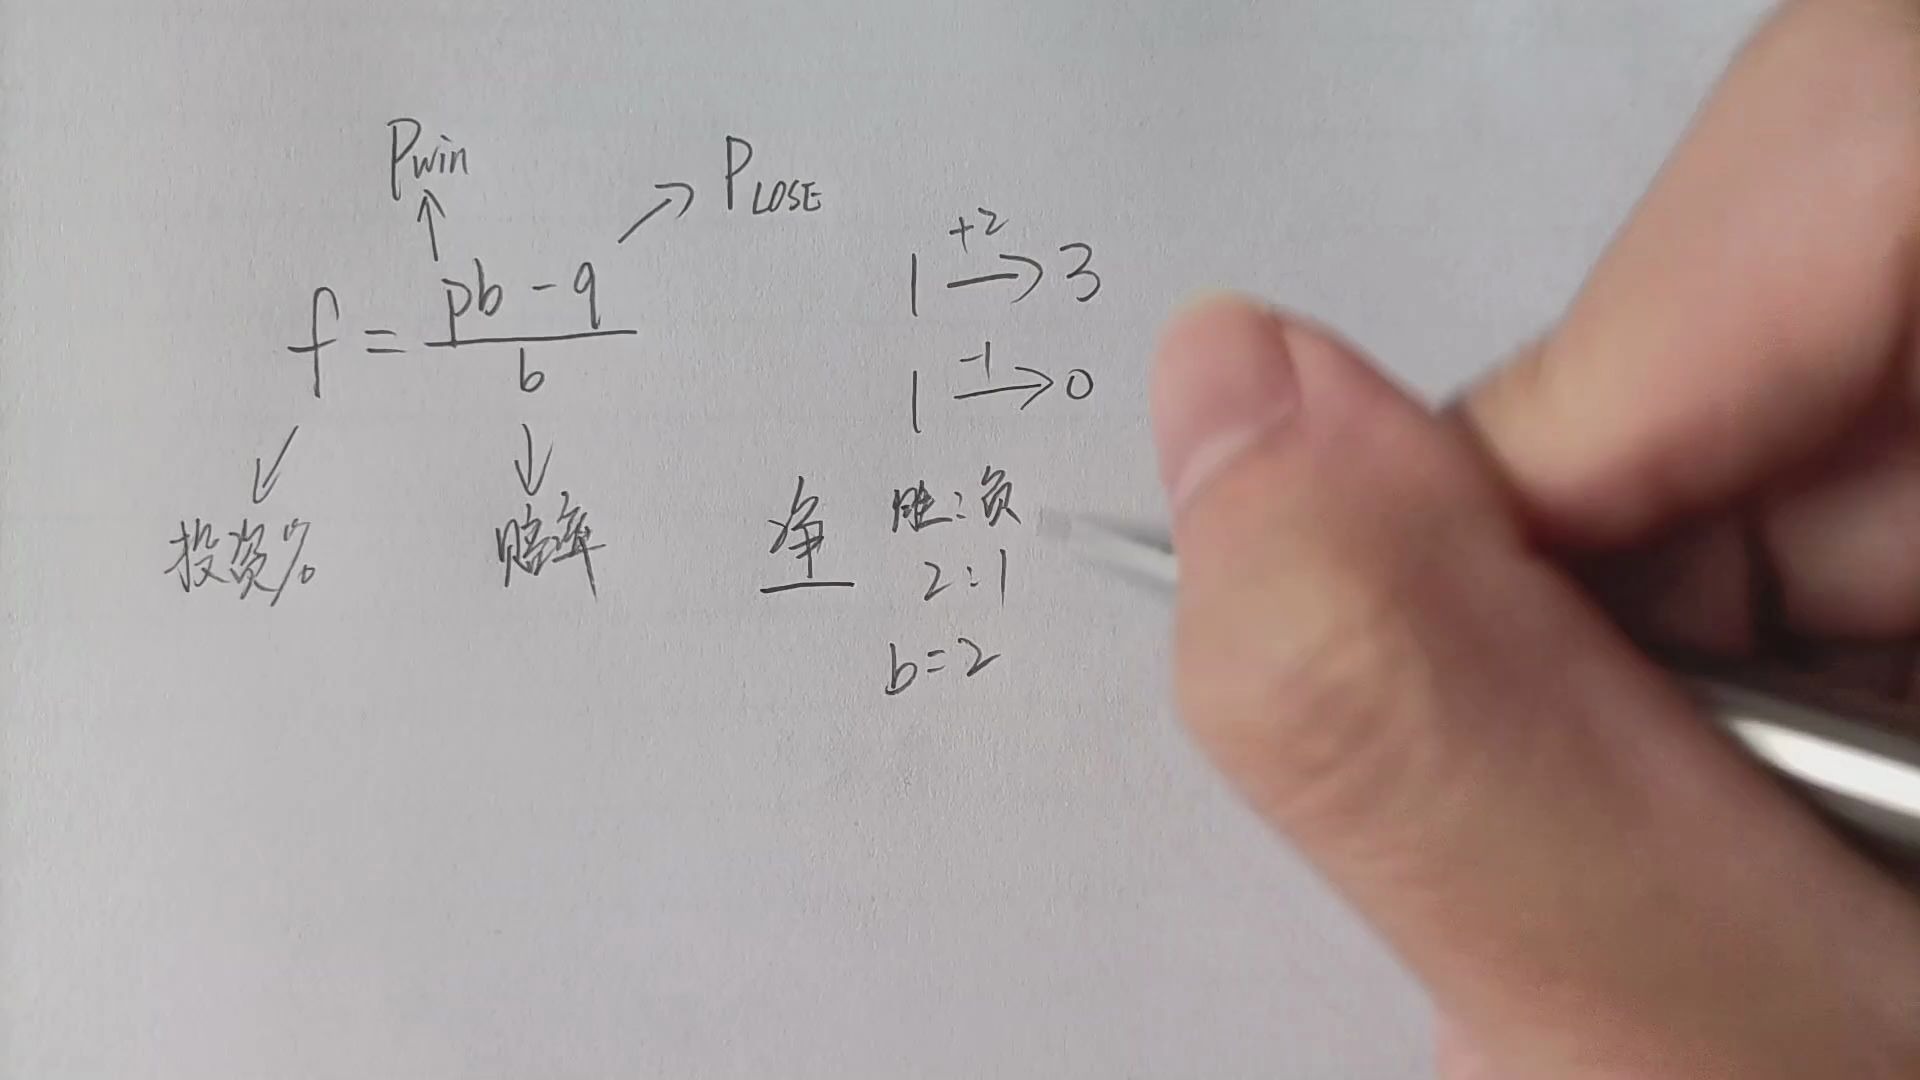 Pwin
PLOSE
f = pb - q / b
投资%
赔率
1 +2→ 3
1 -1→ 0
净 胜:负
2:1
b=2